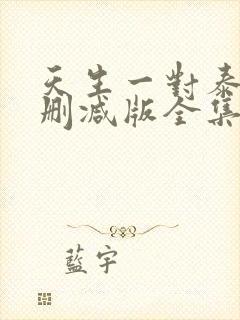 天生一對泰
刪減版全集
藍宇